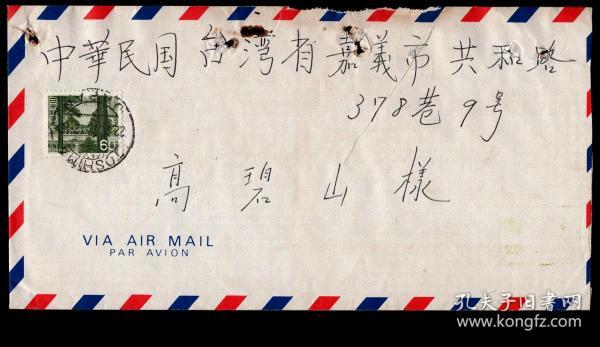 中華民国 台湾省嘉義市共和路
378巷9号
高碧山様
60
TOSHIMA
VIA AIR MAIL
PAR AVION
孔夫子旧书网
www.kongfz.com